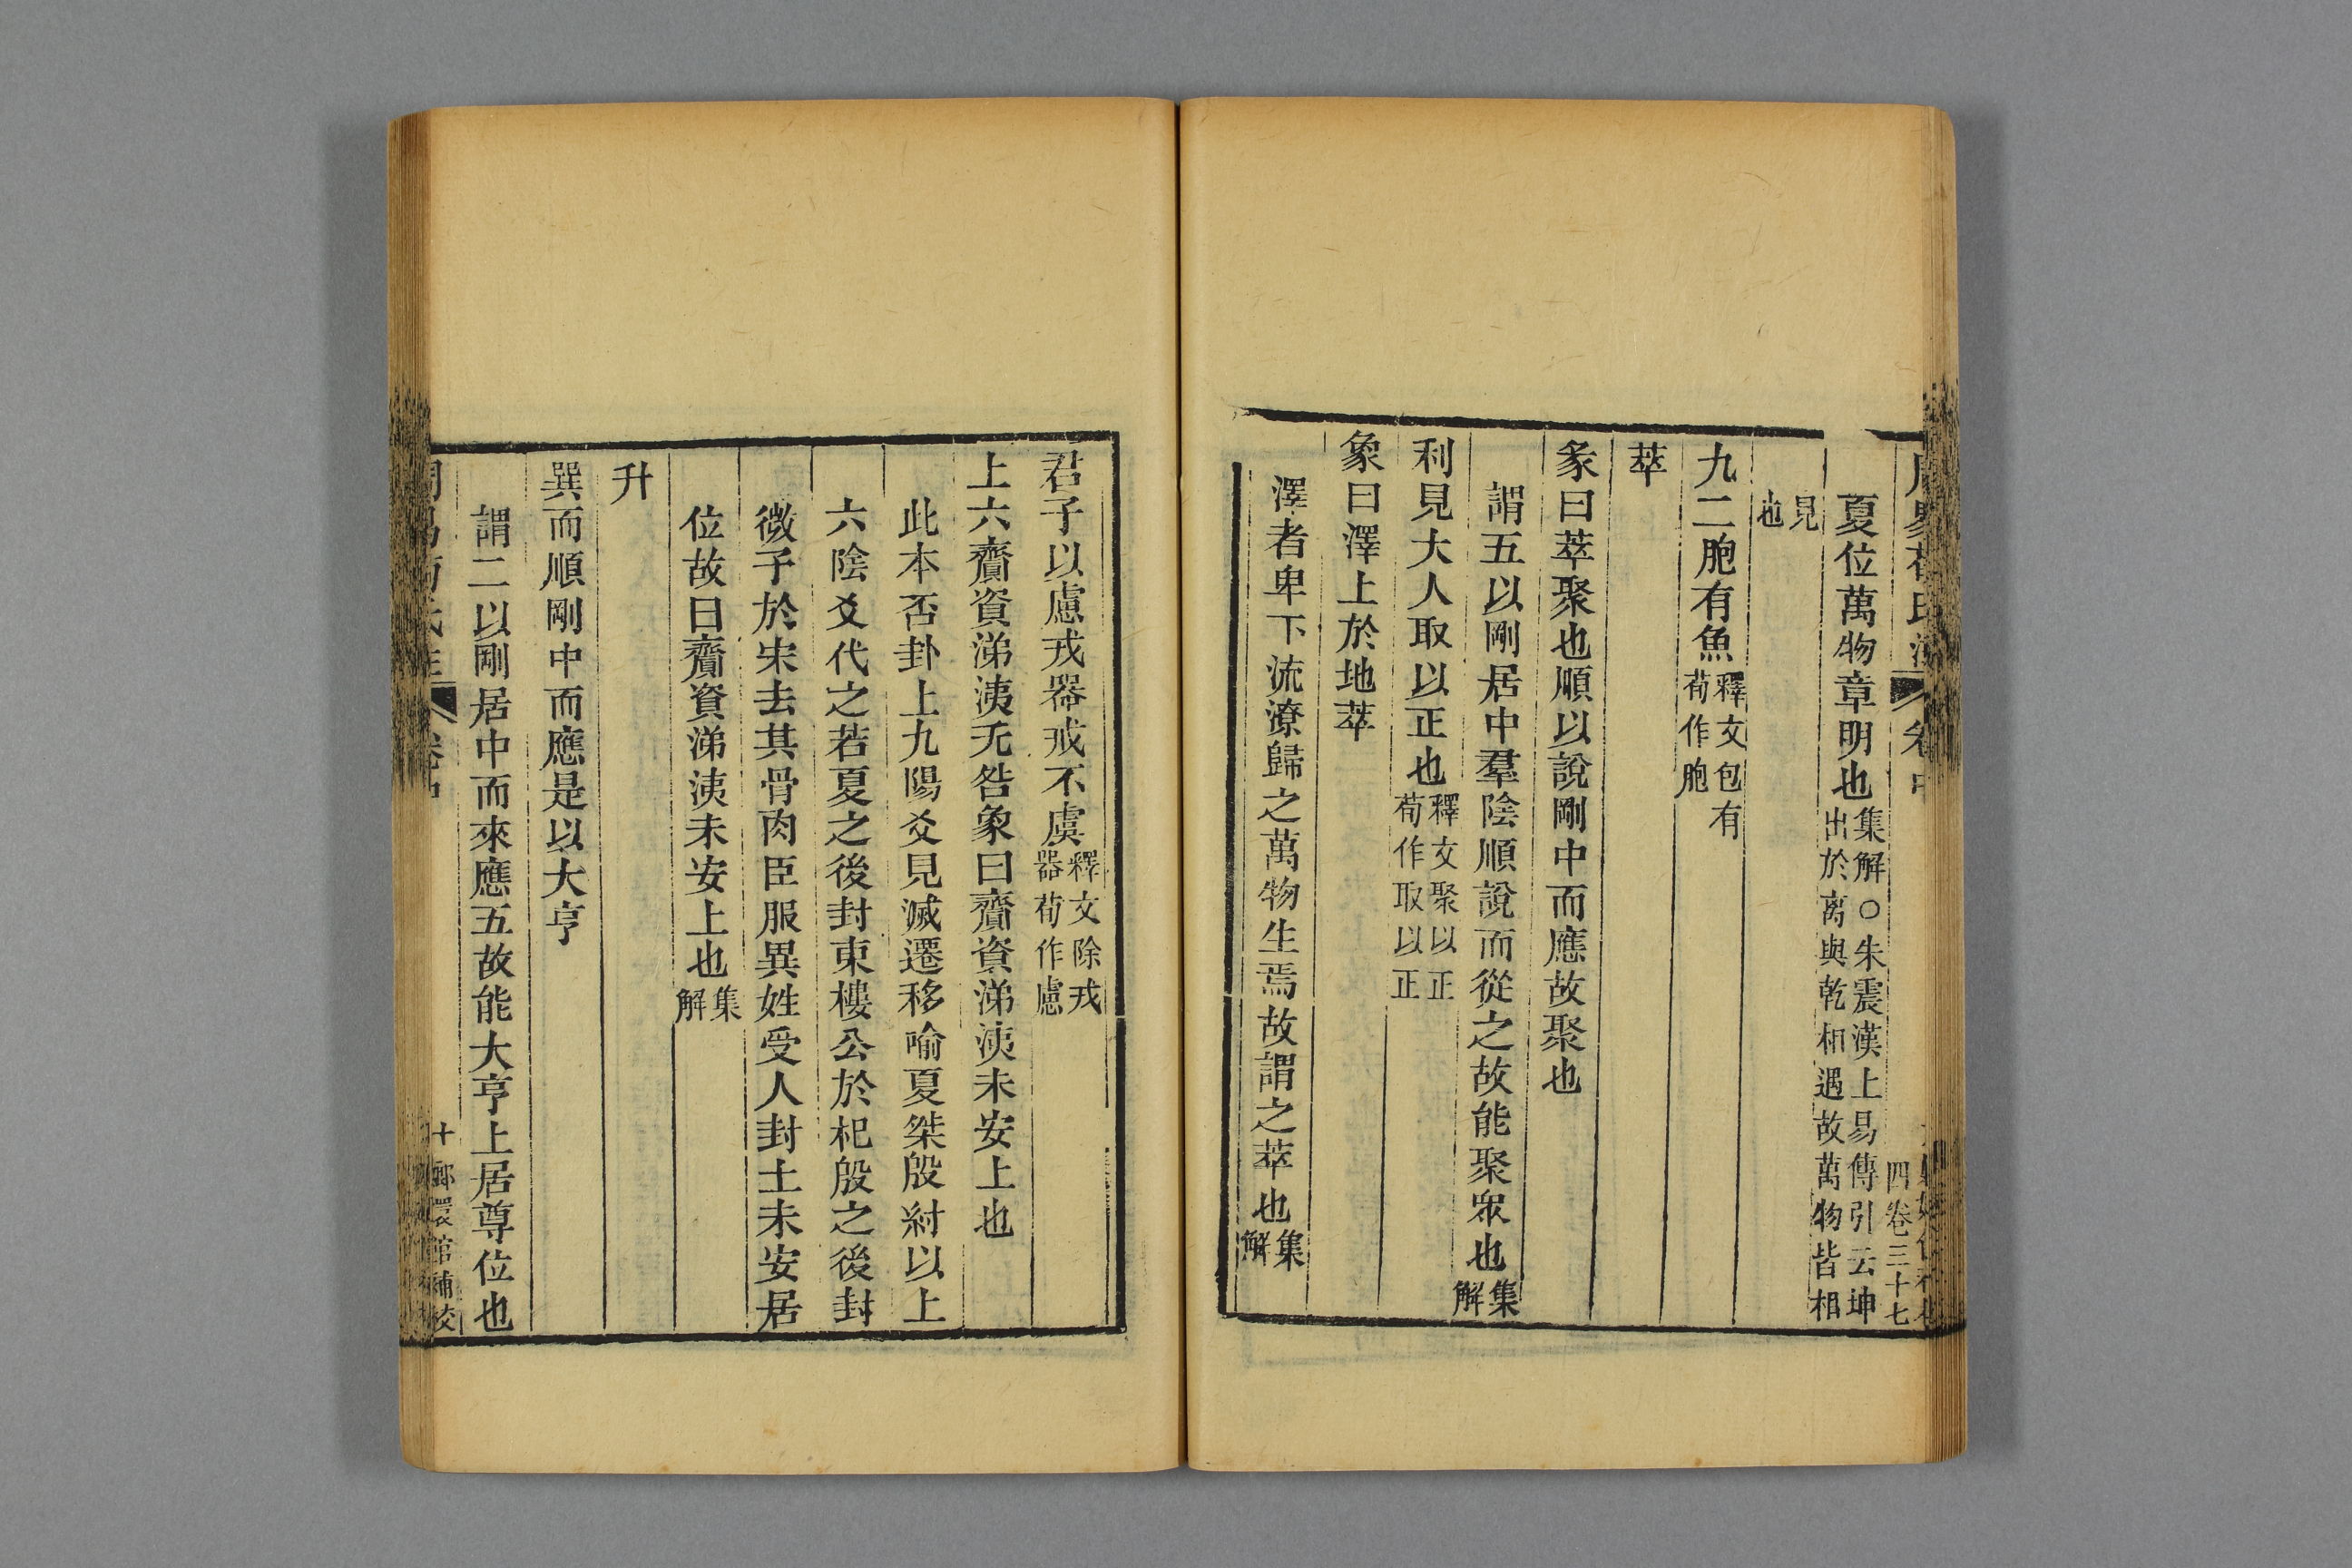 四卷三十七
夏位萬物章明也集解○朱震漢上易傳引云坤出於离與乾相遇故萬物皆相
見也
九二胞有魚釋文包有荀作胞
萃
彖曰萃聚也順以說剛中而應故聚也
謂五以剛居中羣陰順說而從之故能聚眾也集解
利見大人取以正也釋文聚以正荀作取以正
象曰澤上於地萃
澤者卑下流潦歸之萬物生焉故謂之萃也集解
君子以慮戎器戒不虞釋文除戎器荀作慮
上六齎資涕洟无咎象曰齎資涕洟未安上也
此本否卦上九陽爻見滅遷移喻夏桀殷紂以上
六陰爻代之若夏之後封東樓公於杞殷之後封
微子於宋去其骨肉臣服異姓受人封土未安居
位故曰齎資涕洟未安上也集解
升
巽而順剛中而應是以大亨
謂二以剛居中而來應五故能大亨上居尊位也
十